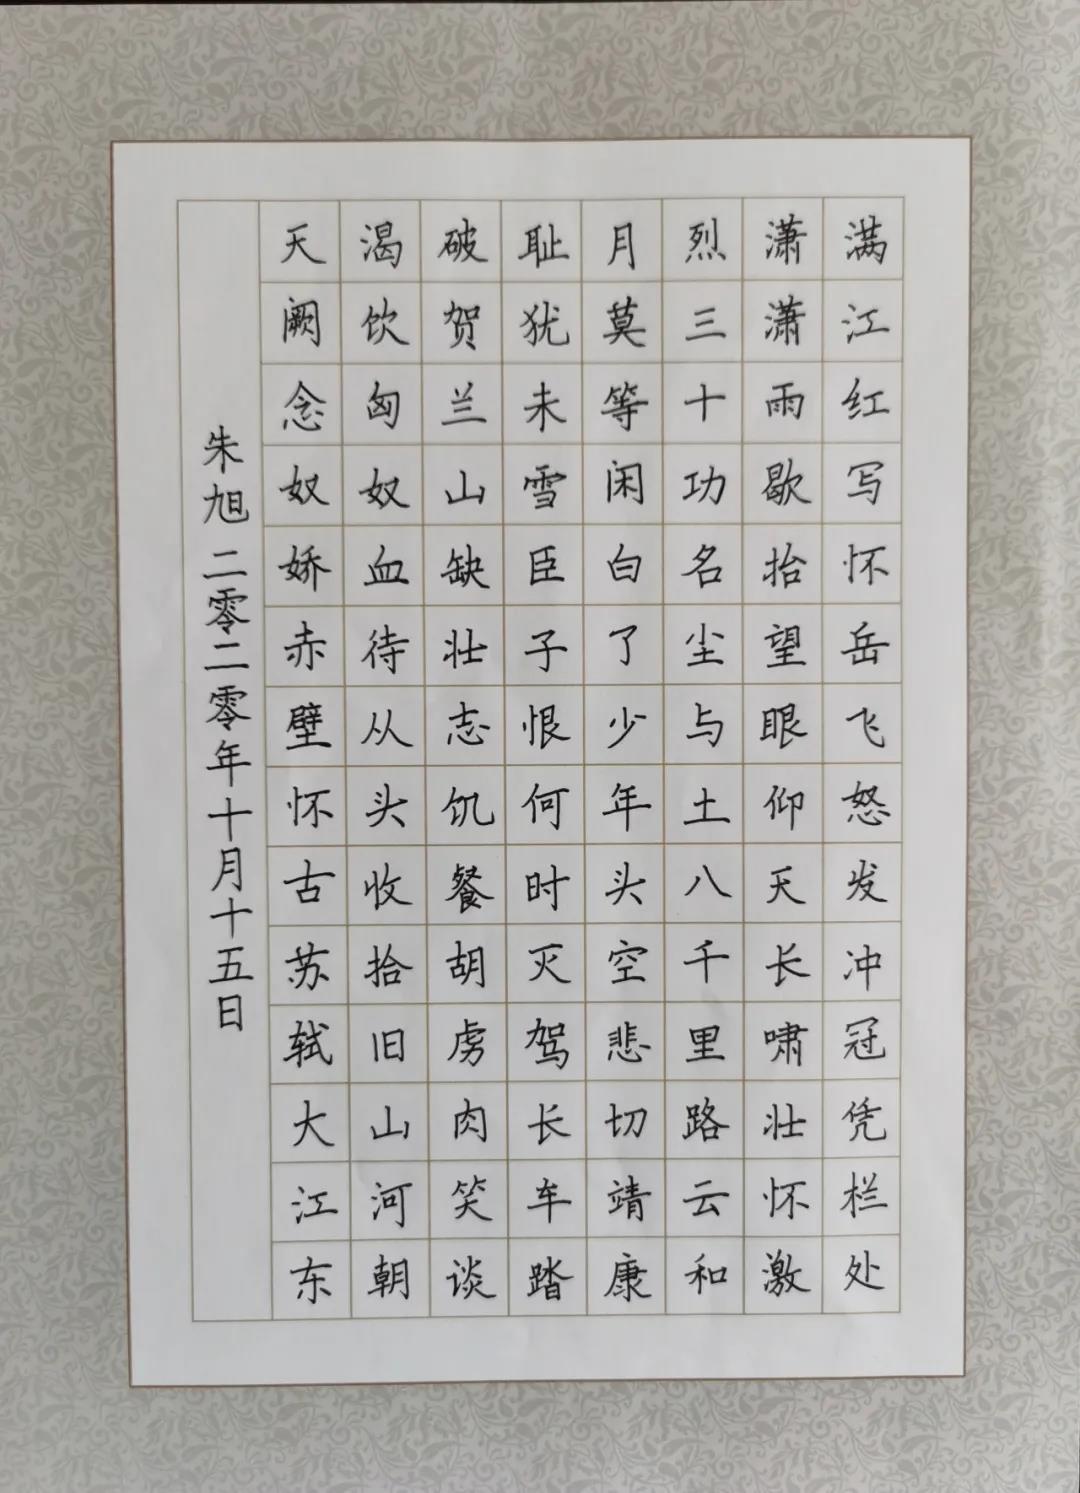 满江红写怀岳飞怒发冲冠凭栏处
潇潇雨歇抬望眼仰天长啸壮怀激
烈三十功名尘与土八千里路云和
月莫等闲白了少年头空悲切靖康
耻犹未雪臣子恨何时灭驾长车踏
破贺兰山缺壮志饥餐胡虏肉笑谈
渴饮匈奴血待从头收拾旧山河朝
天阙念奴娇赤壁怀古苏轼大江东
朱旭二零二零年十月十五日